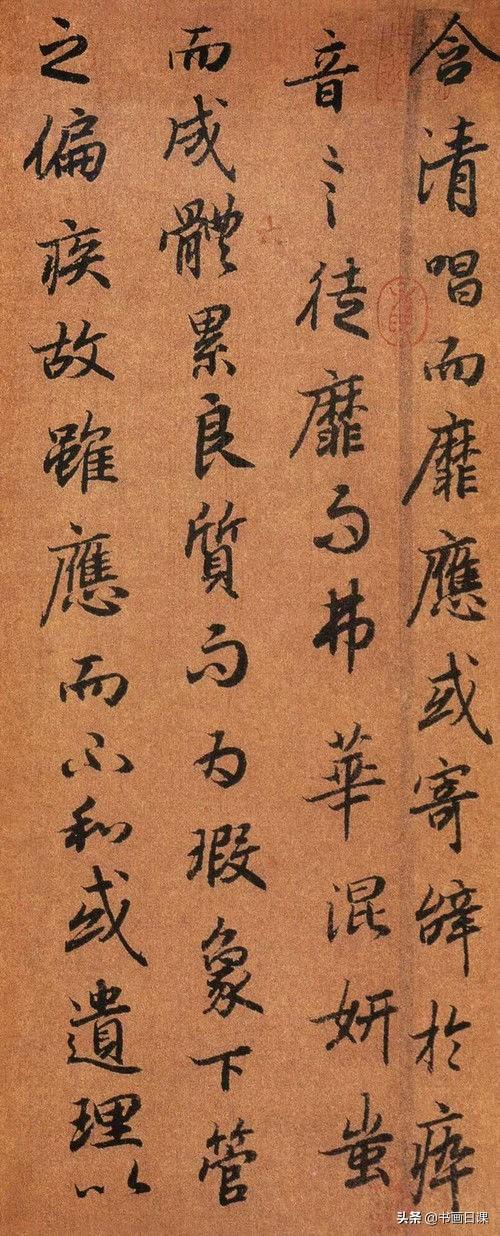 含清唱而靡應或寄辭於瘁
音言徒靡而弗華混妍蚩
而成體累良質而為瑕象下管
之偏疾故雖應而不和或遺理以
头条 @书画日课